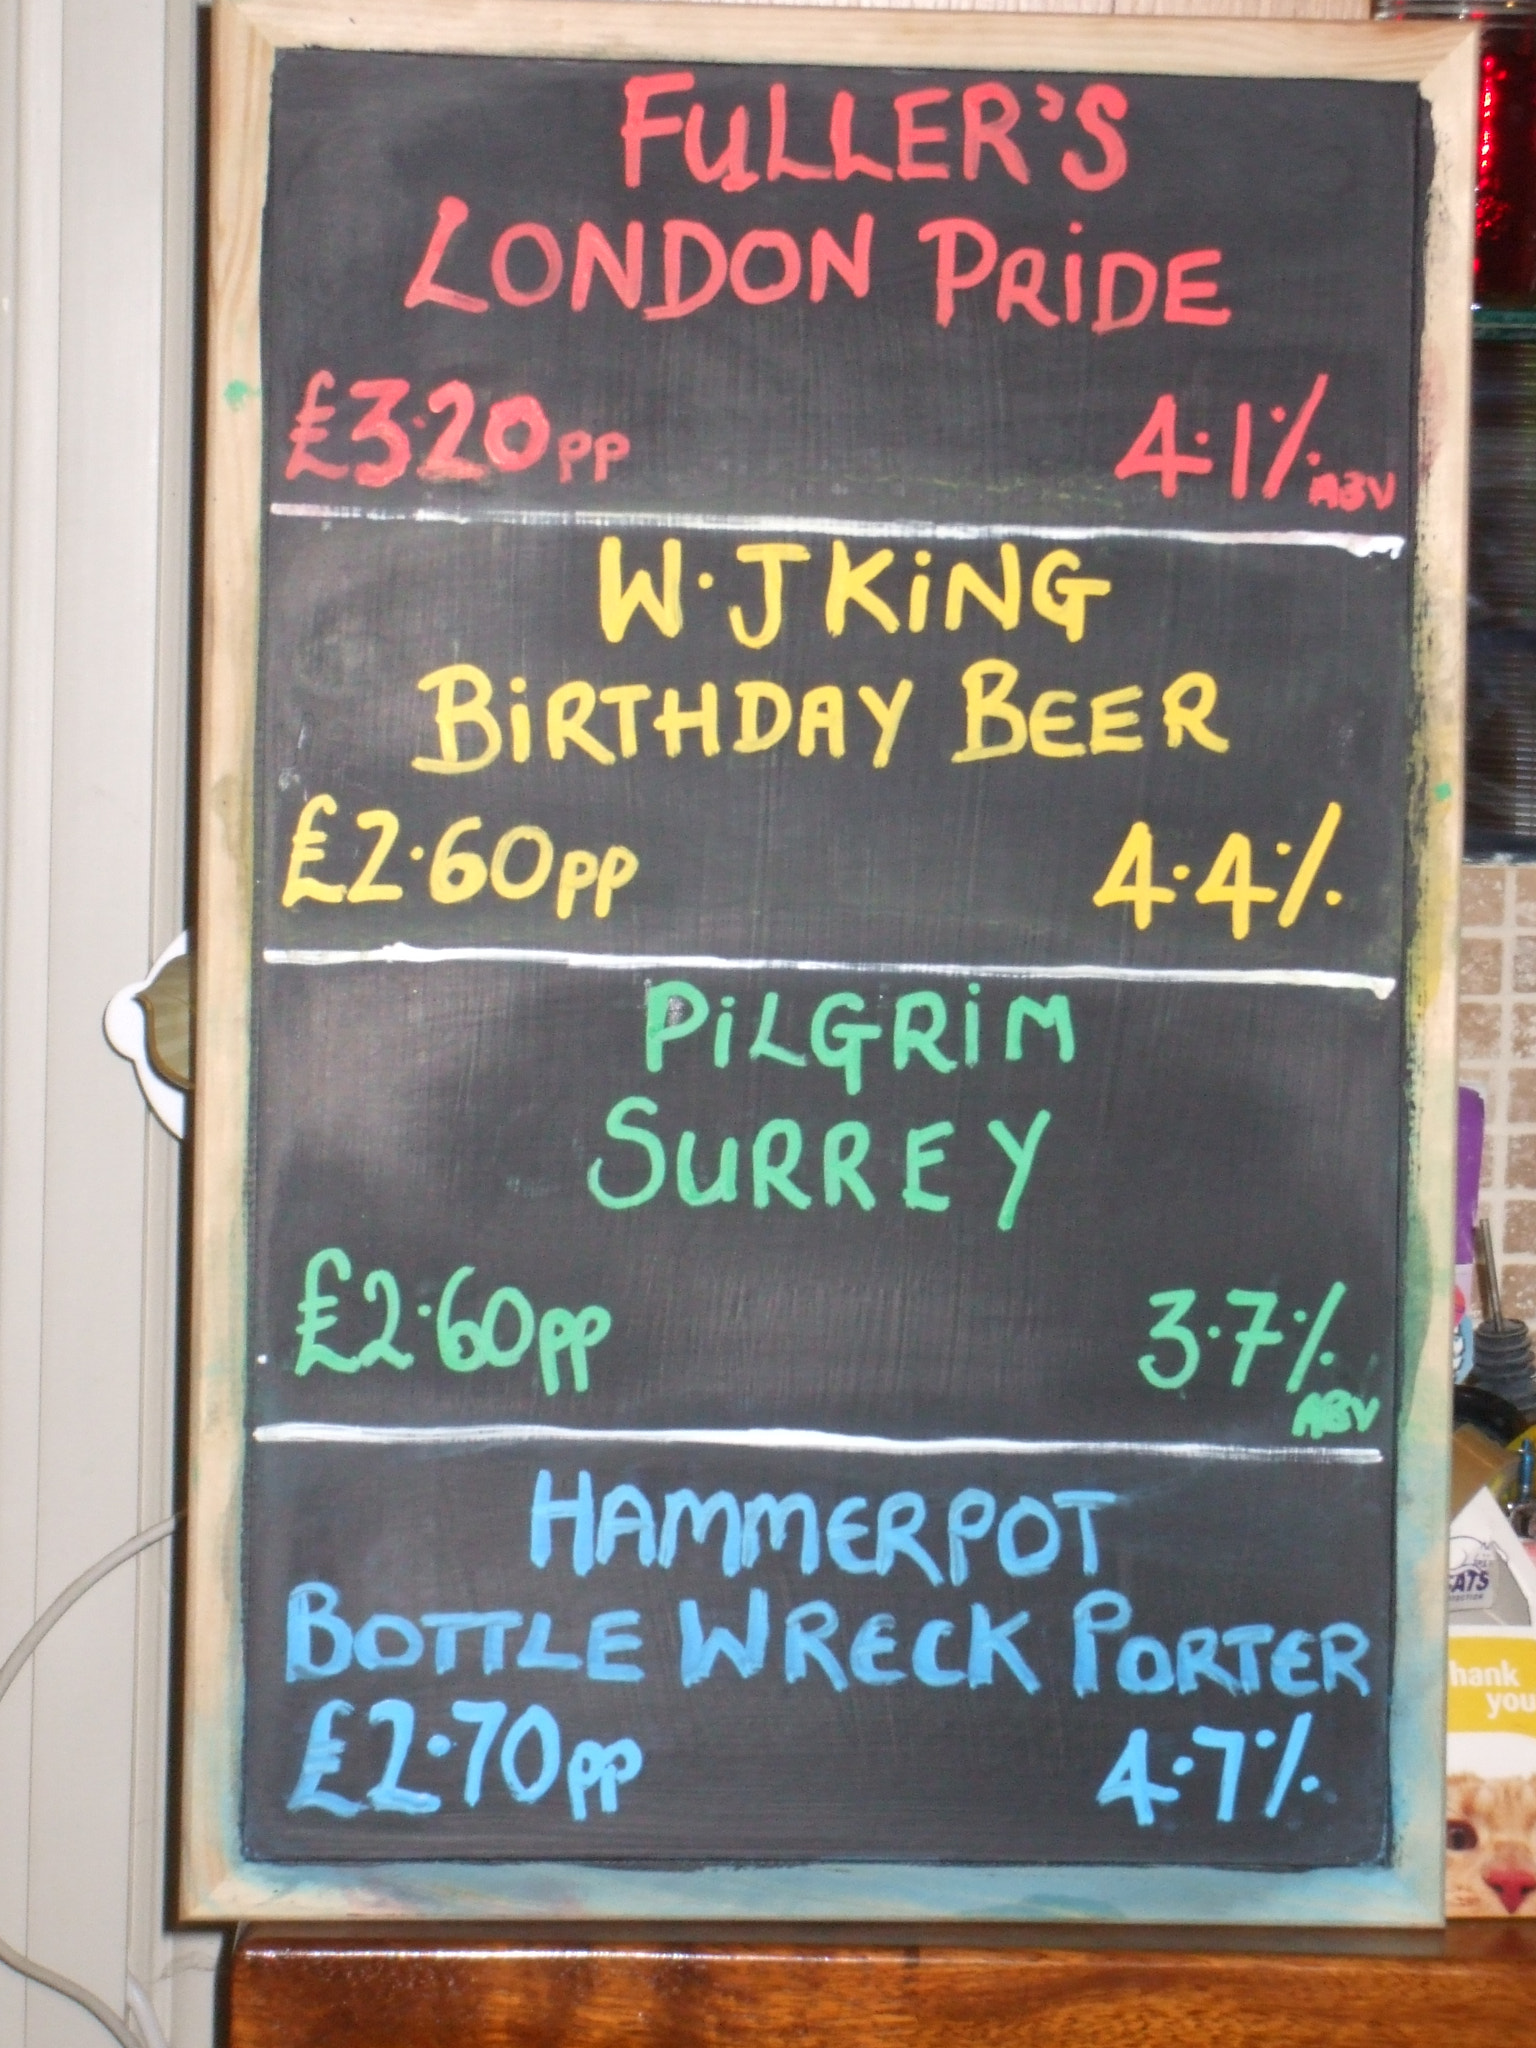 FULLER'S
LONDON PRIDE
£3.20pp 4.1% ABV
W.J KING
BIRTHDAY BEER
£2.60pp 4.4%
PILGRIM
SURREY
£2.60pp 3.7% ABV
HAMMERPOT
BOTTLE WRECK PORTER
£2.70pp 4.7%
hank
you